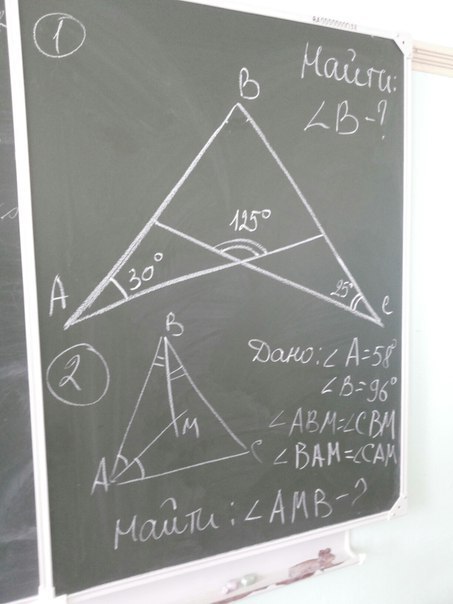 1
Найти:
∠B-?
B
125°
A
30°
25°
C
2
B
M
A
C
Дано: ∠A=58°
∠B=96°
∠ABM=∠CBM
∠BAM=∠CAM
Найти: ∠AMB-?